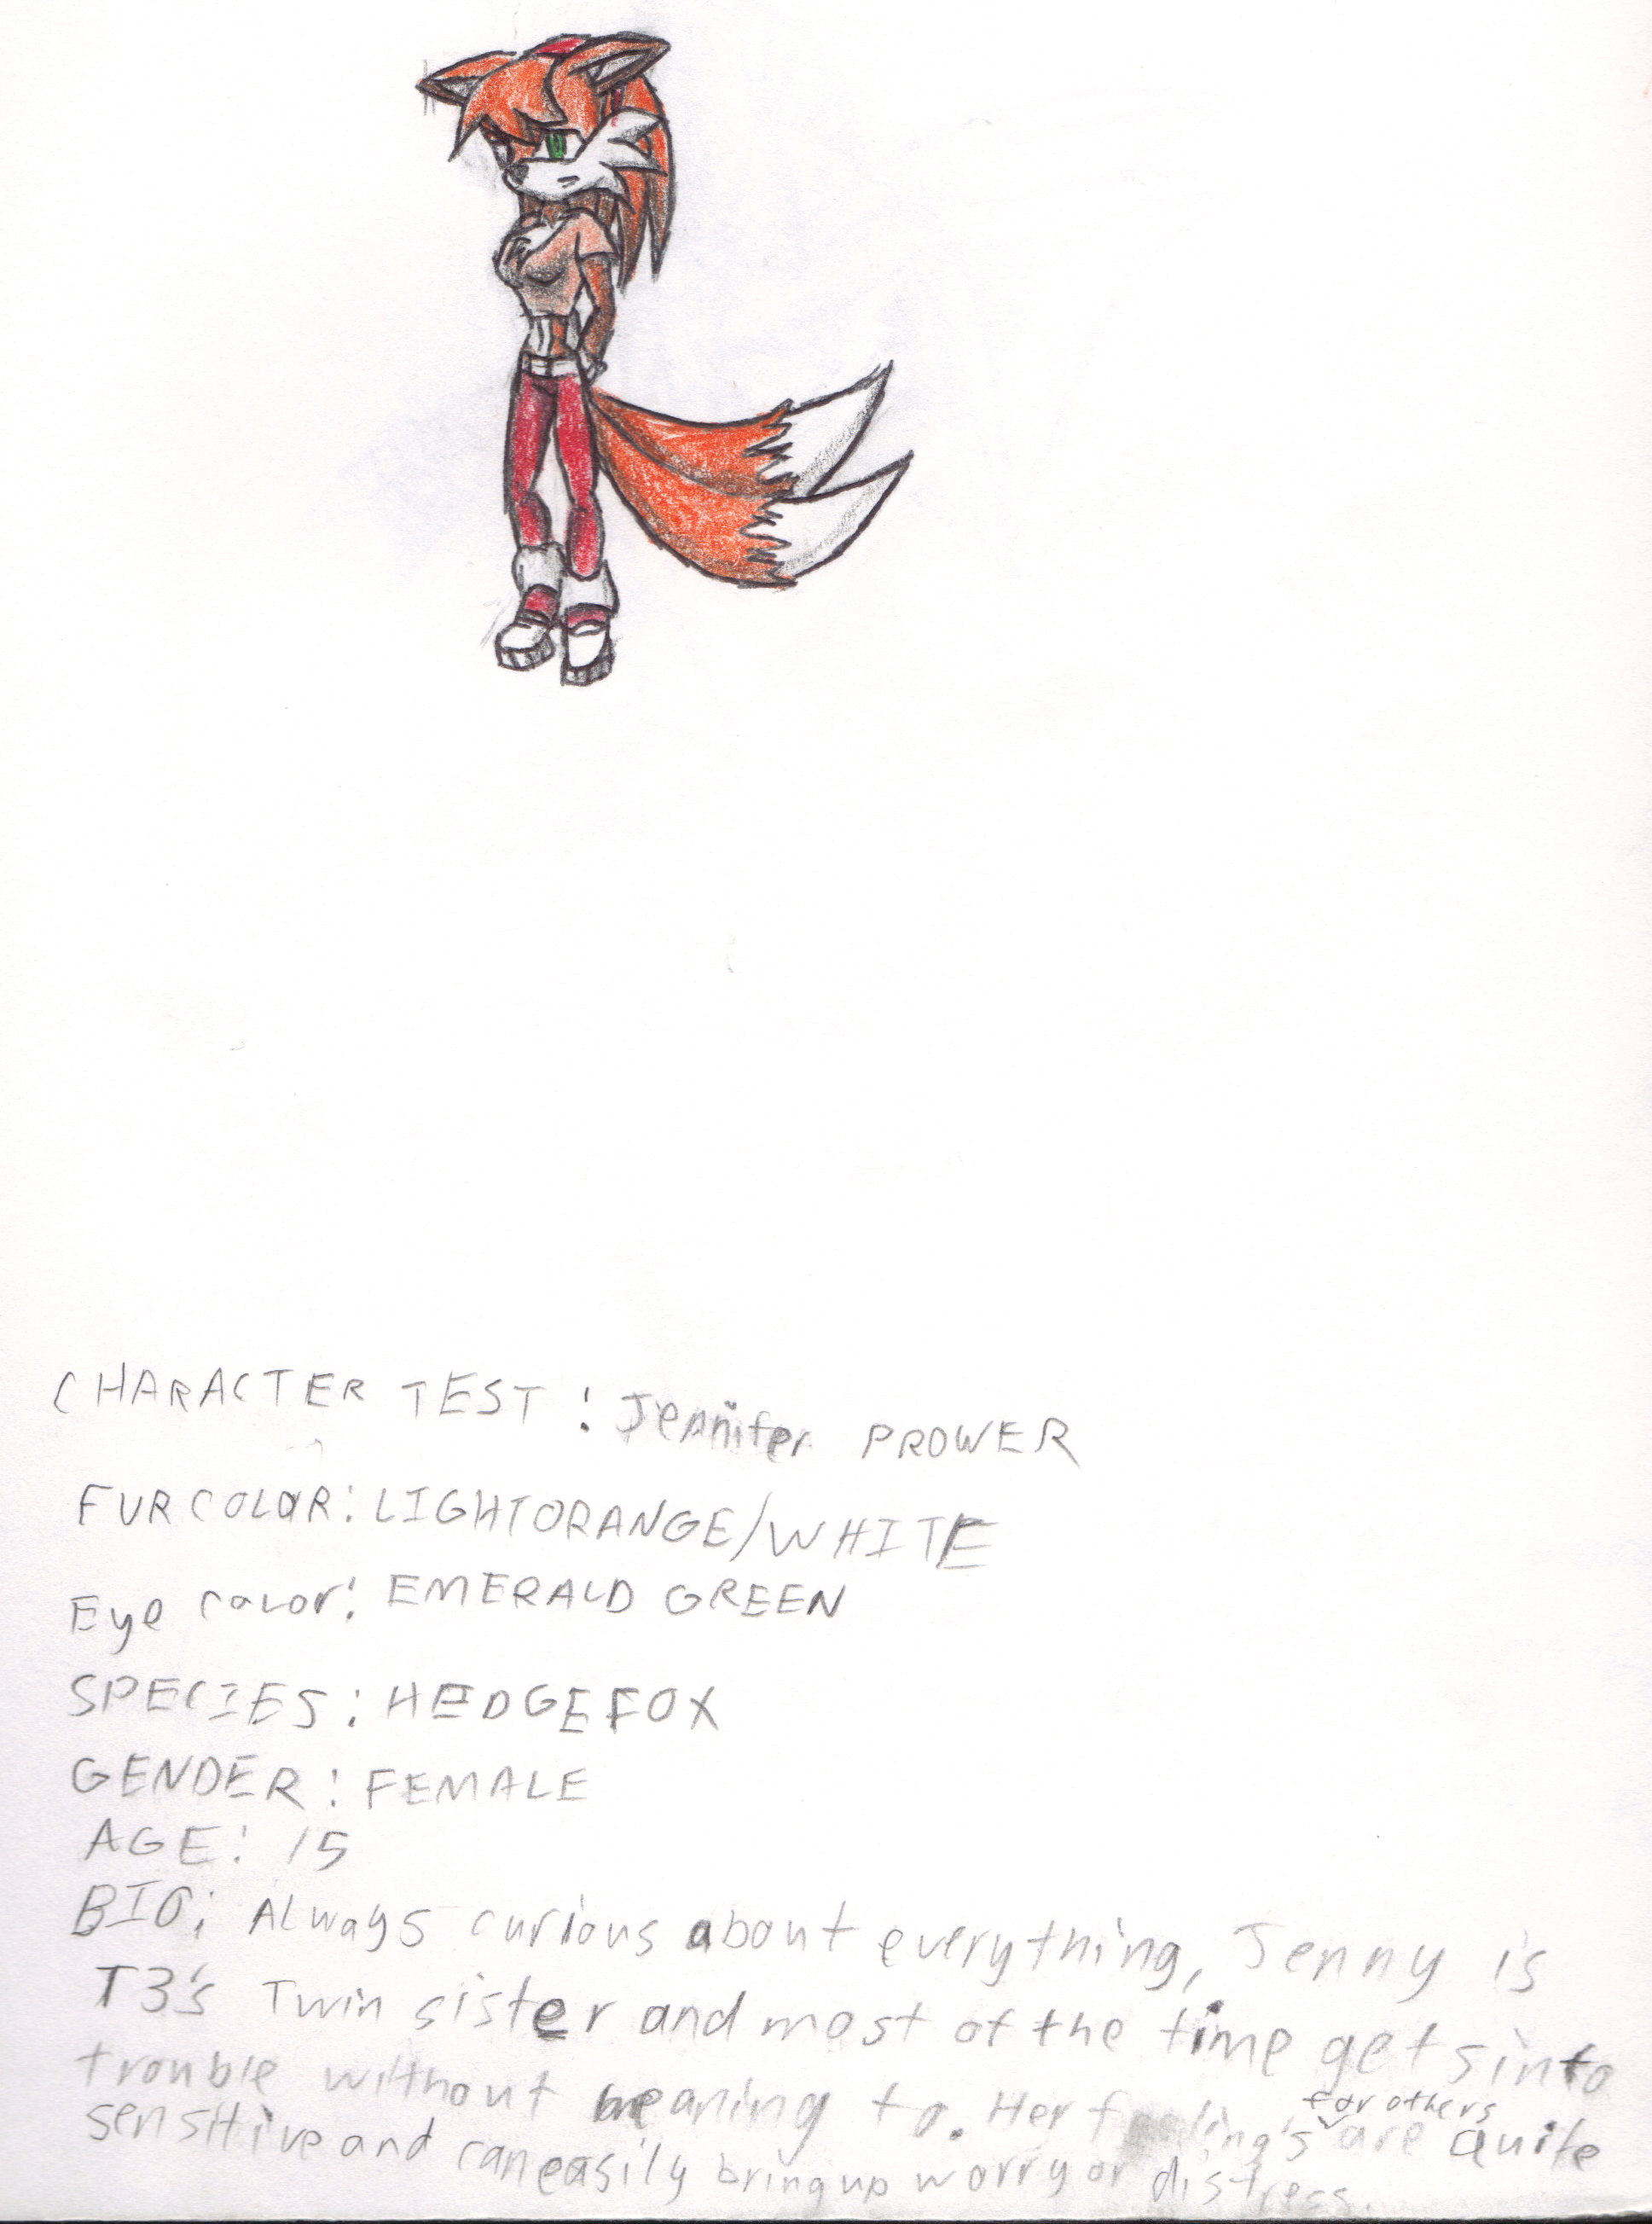 CHARACTER TEST: Jennifer PROWER
FUR COLOR: LIGHTORANGE/WHITE
Eye color: EMERALD GREEN
SPECIES: HEDGEFOX
GENDER: FEMALE
AGE: 15
BIO: Always curious about everything, Jenny is
T3's Twin sister and most of the time gets into
trouble without meaning to. Her feeling's for others are quite
sensitive and can easily bring up worry or distress.